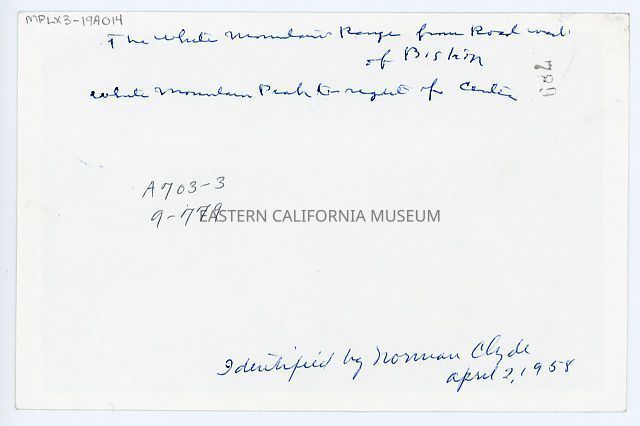 MPLX3-19A014
The White Mountain Range from Road west
of Bishop
789
White Mountain Peak to right of Center
A703-3
9-779
EASTERN CALIFORNIA MUSEUM
Identified by Norman Clyde
April 2, 1958